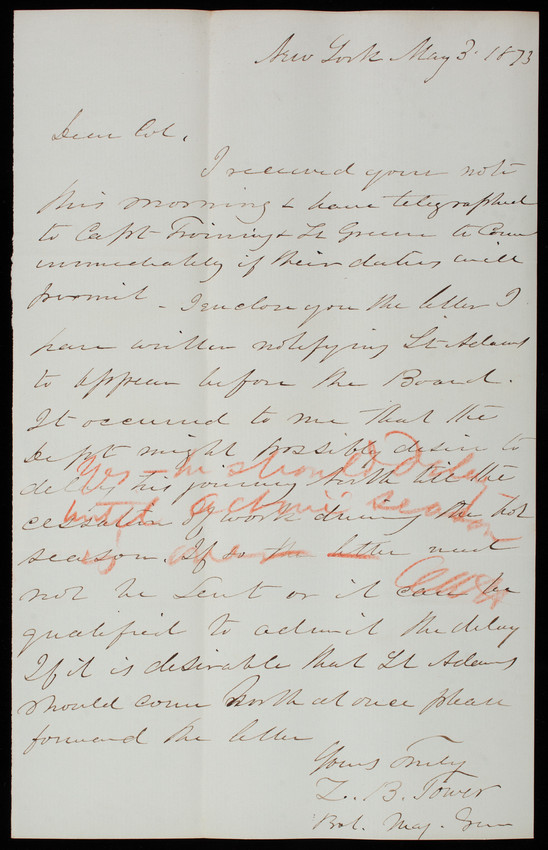 New York May 3. 1873
Dear Col.
I received your note
this morning & have telegraphed
to Capt Twining & Lt Greene to come
immediately if their duties will
permit - I enclose you the letter I
have written notifying Lt Adams
to appear before the Board.
It occurred to me that the
Dept might possibly desire to
delay his joining North till the
cessation of work during the hot
season. If so the letter need
not be sent or it can be
qualified to admit the delay
If it is desirable that Lt Adams
should come North at once please
forward the letter
Yours Truly
Z. B. Tower
Bvt. Maj. Gen
Yes - he should delay
until active season
is over